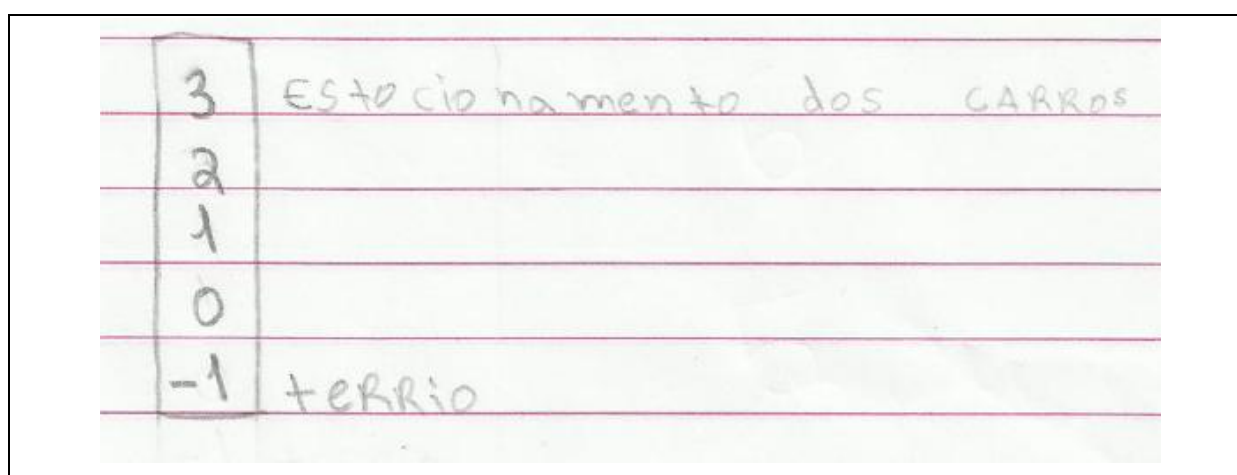 3 EStocionamento dos CARROS
2
1
0
-1 teRRio